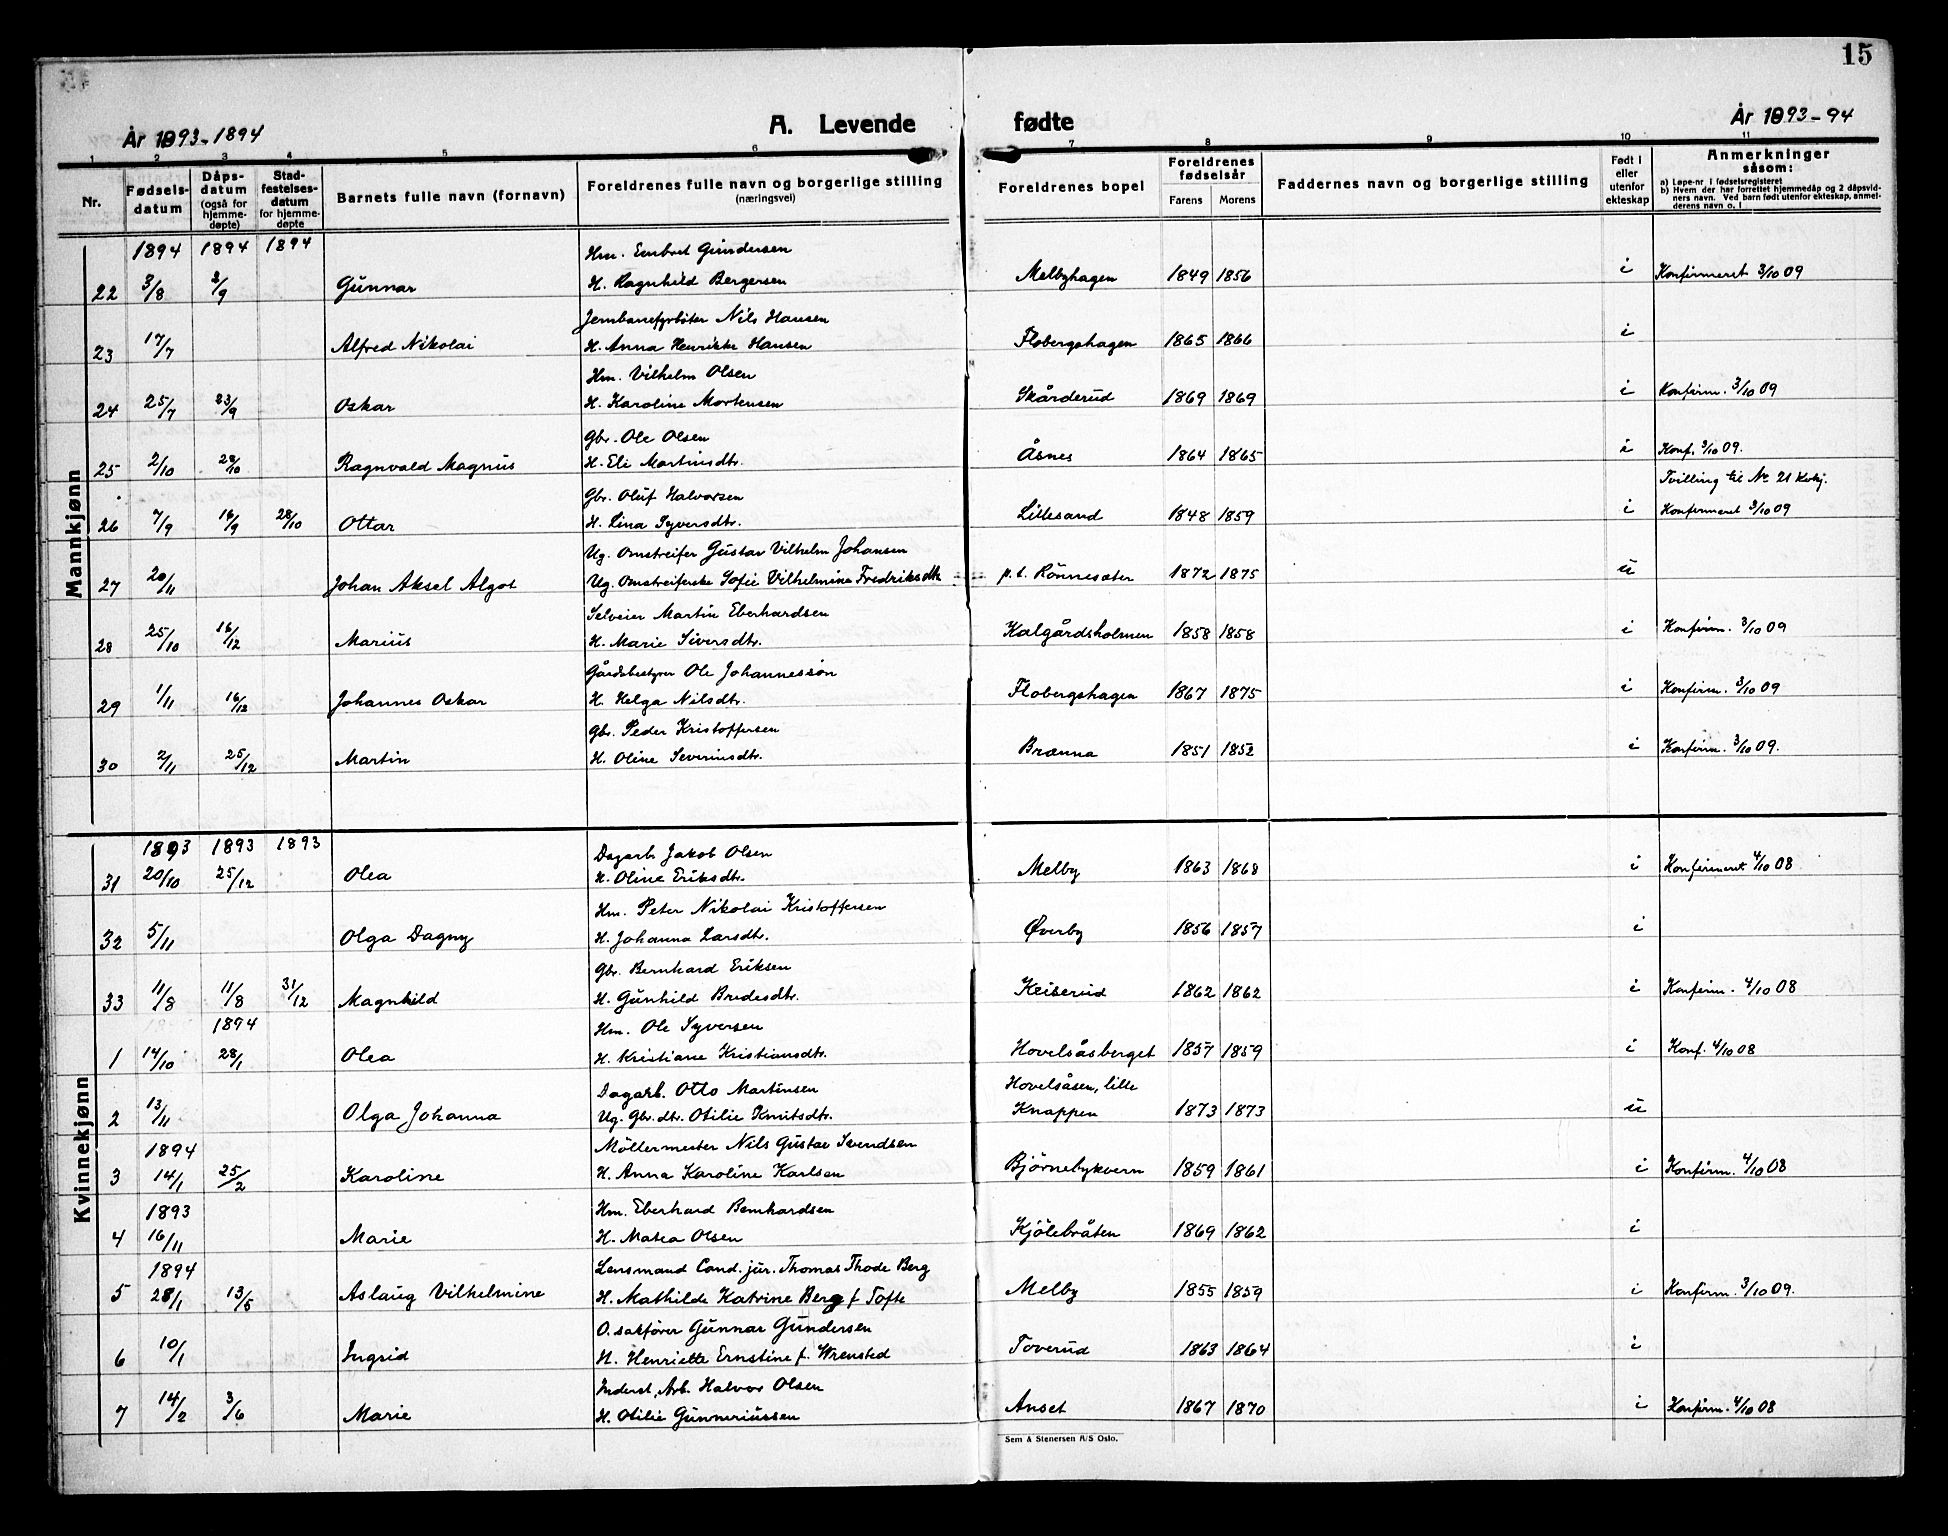 15
År 1893-1894
A. Levende fødte
År 1893-94
1 2 3 4 5 6 7 8 9 10 11
Nr.
Fødsels-datum
Dåps-datum (også for hjemme-døpte)
Stad-festelses-datum for hjemme-døpte
Barnets fulle navn (fornavn)
Foreldrenes fulle navn og borgerlige stilling (næringsvei)
Foreldrenes bopel
Foreldrenes fødselsår
Farens Morens
Faddernes navn og borgerlige stilling
Født i eller utenfor ekteskap
Anmerkninger såsom:
a) Løpe-nr i fødselsregisteret
b) Hvem der har forrettet hjemmedåp og 2 dåpsvid-
ners navn. Ved barn født utenfor ekteskap, anmel-
derens navn o. l
Mannkjønn
1894 1894 1894 Hm. Embret Gundersen
22 3/8 2/9 Gunnar H. Ragnhild Bergersen Melbyhagen 1849 1856 i Konfirmeret 3/10 09
Jernbanefyrbøter Nils Hansen
23 17/7 Alfred Nikolai H. Anna Henrikke Hansen Flobergshagen 1865 1866 i
Hm. Vilhelm Olsen
24 25/7 23/9 Oskar H. Karoline Mortensen Skårderud 1869 1869 i Konfirm. 3/10 09
Gbr. Ole Olsen
25 2/10 28/10 Ragnvald Magnus H. Eli Martinsdtr. Åsnes 1864 1865 i Konf. 3/10 09.
Tvilling til No 21 Kvkj.
Gbr. Oluf Halvorsen
26 7/9 16/9 28/10 Ottar H. Lina Syversdtr. Lillesand 1848 1859 i Konfirmeret 3/10 09
Ug. Omstreifer Gustav Vilhelm Johansen
27 20/11 Johan Aksel Algot Ug. Omstreiferske Sofie Vilhelmine Fredriksdtr p. t. Rønnesæter 1872 1875 u
Selveier Martin Eberhardsen
28 25/10 16/12 Marius H. Marie Siversdtr. Kalgårdsholmen 1858 1858 i Konfirm. 3/10 09
Gårdsbestyrer Ole Johannessøn
29 1/11 16/12 Johannes Oskar H. Helga Nilsdtr. Flobergshagen 1867 1875 i Konfirm. 3/10 09
Gbr. Peder Kristoffersen
30 2/11 25/12 Martin H. Oline Severinsdtr. Brænna 1851 1852 i Konfirm. 3/10 09.
Kvinnekjønn
1893 1893 1893 Dagarb. Jakob Olsen
31 20/10 25/12 Olea H. Oline Eriksdtr. Melby 1863 1868 i Konfirmeret 4/10 08
Hm. Peter Nikolai Kristoffersen
32 5/11 Olga Dagny H. Johanna Larsdtr. Øverby 1856 1857 i
Gbr. Bernhard Eriksen
33 11/8 11/8 31/12 Magnhild H. Gunhild Bredesdtr. Keiserud 1862 1862 i Konfirm. 4/10 08
1894 Hm. Ole Syversen
1 14/10 28/1 Olea H. Kristiane Kristiansdtr. Hovelsåsberget 1857 1859 i Konf. 4/10 08
Dagarb. Otto Martinsen Hovelsåsen, lille
2 13/11 Olga Johanna Ug. Gbr. dtr. Otilie Knutsdtr. Knappen 1873 1873 u
1894 Møllermester Nils Gustav Svendsen
3 14/1 25/2 Karoline H. Anna Karoline Karlsen Bjørnebykvern 1859 1861 i Konfirm. 4/10 08
1893 Hm. Eberhard Bernhardsen
4 16/11 Marie H. Matea Olsen Kjölebråten 1869 1862 i
1894 Lensmand Cand. jur. Thomas Thode Berg
5 28/1 13/5 Aslaug Vilhelmine H. Mathilde Katrine Berg f Tofte Melby 1855 1859 i Konfirm. 3/10 09.
O.sakfører Gunnar Gundersen
6 10/1 Ingrid H. Henriette Ernstine f. Wrensted Toverud 1863 1864 i
Inderst, Arb. Halvor Olsen
7 14/2 3/6 Marie H. Otilie Gunneriussen Anset 1867 1870 i Konfirm. 4/10 08
Sem & Stenersen A/S Oslo.